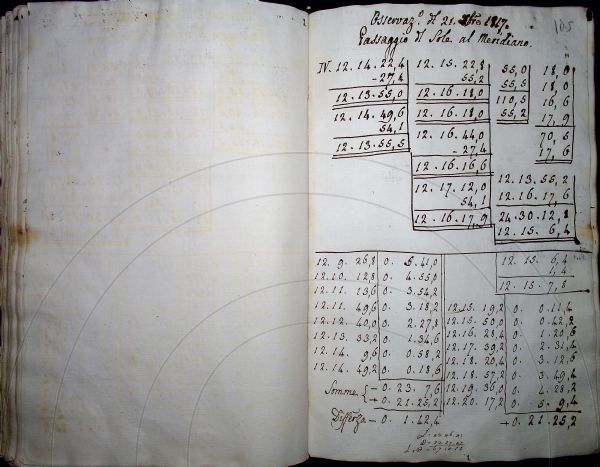 105
Osservaz.e del 21. 1817.
Passaggio del Sole al Meridiano.
IV. 12. 14. 22,4
- 27,4
12. 13. 55,0
12. 14. 49,6
54,1
12. 13. 55,5
12. 15. 22,8
55,2
12. 16. 18,0
12. 16. 18,0
12. 16. 44,0
- 27,4
12. 16. 16,6
12. 17. 12,0
54,1
12. 16. 17,9
55,0 18,0
55,5 18,0
110,5 16,6
55,2 17,9
70,5
17,6
12. 13. 55,2
12. 16. 17,6
24. 30. 12,8
12. 15. 6,4
12. 15. 6,4
1,4
12. 15. 7,8
12. 9. 26,8 0. 5. 41,0
12. 10. 12,8 0. 4. 55,0
12. 11. 13,6 0. 3. 54,2
12. 11. 49,6 0. 3. 18,2
12. 12. 40,0 0. 2. 27,8
12. 13. 33,2 0. 1. 34,6
12. 14. 9,6 0. 0. 58,2
12. 14. 49,2 0. 0. 18,6
Somme - 0. 23. 7,6
+ 0. 21. 25,2
Differza - 0. 1. 42,4
12. 15. 19,2 0. 0. 11,4
12. 15. 50,0 0. 0. 42,2
12. 16. 28,4 0. 1. 20,6
12. 17. 39,2 0. 2. 31,4
12. 18. 20,4 0. 3. 12,6
12. 18. 57,2 0. 3. 49,4
12. 19. 36,0 0. 4. 28,2
12. 20. 17,2 0. 5. 9,4
+ 0. 21. 25,2